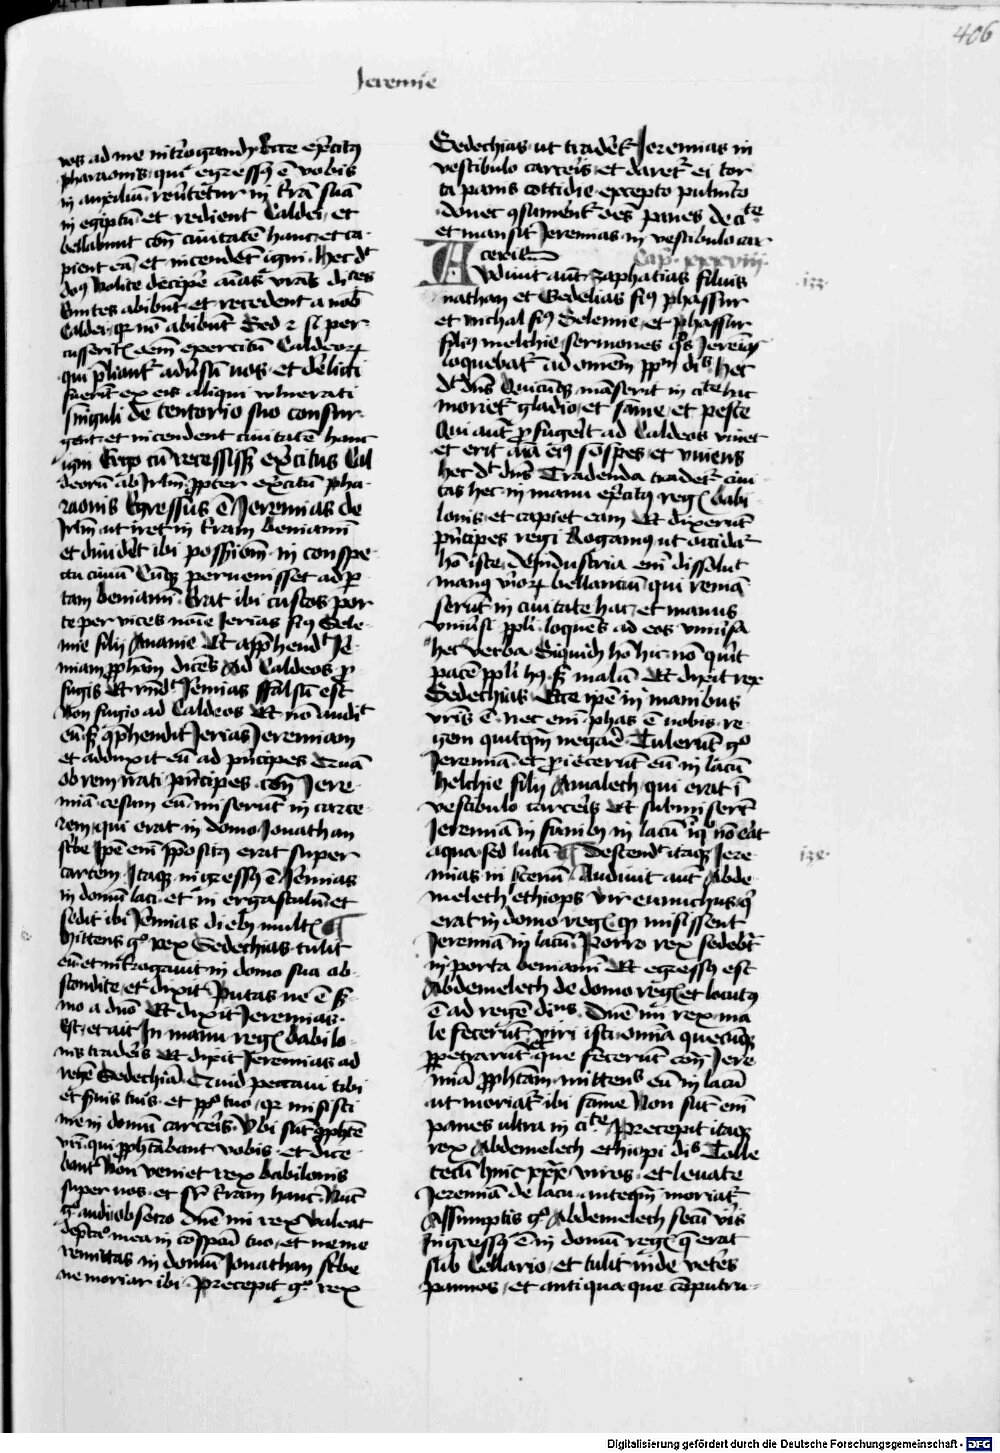 406
Jeremie
vos ad me int'rogandū Ecce ex'citꝯ
pharaonis, qui egressꝯ ē vobis
in auxiliū. reu'tetur in t'rā suā
in egiptū et redient Caldei, et
bellabunt cont̄ ciuitatē hanc, et ca-
pient eā, et incendēt igni. Hec dt̄
dn̄s Nolite decip'e aīas vr̄as dicētes
Euntes abibūt et recedent a nob̄
Caldei, qr nō abibūt Sed ⁊ si per-
cusserit̄ oēm exercitū Caldeoꝝ
qui p̄liant' adu'sū uos, et d'elicti
fuerīt ex eis aliqui vulnerati
singuli de tentorio suo consur-
gent, et incendent ciuitatē hanc
igni Ergo cū recessissꝫ ex'citus Cal
deorū ab Jrl'm propter ex'citū pha-
raonis Egressus ē Jeremias de
Jrl'm ut iret in t'ram beniamī
et diuid'et ibi possessionē in conspe-
ctu ciuiū Cūqꝫ peruenisset ad por
tam beniamī. Erat ibi custos por
te per vices noīe Jerias filiꝯ Sele-
mie filij Ananie Et app̄hendit Je-
miam prophetam dicēs Ad Caldeos pro
fugis Et rn̄dit Jemias Falsū est
Non fugio ad Caldeos Et nō audit
eū sꝫ cōp̄hendit Jerias Jeremiam
et adduxit eū ad p'ncipes Quā
ob rem irati p'ncipes contra Jere-
miā cesum eū miserūt in carce-
rem, qui erat in domo Jonathan
sc'be Ipe em̄ p̄positꝯ erat super
carcerem, Itaqꝫ ingressꝯ ē Jemias
in domū laci et in ergastulū et
sedit ibi Jemias diebꝯ multis ¶
Mittens g° rex Sedechias tulit
eū et int'rogauit in domo sua ab-
scondite, et dixit Putas ne ē s'r
mo a dn̄o Et dixit Jeremias.
Est, et ait In manu regis babilo-
nis trad'eris Et dixit Jeremias ad
regē Sedechiā Quid peccaui tibi
et s'uis tuis. et ppl'o tuo, qr misisti
me in domū carceris Vbi sūt prophete
vr̄i, qui prophetabant vobis. et dice-
bant Non veniet rex babilonis
super uos. et sup t'ram hanc. Nūc
g° audi obsecro dn̄e mi rex Valeat
dep̄catio mea in cōspectu tuo, et ne me
remittas in domū Jonathan sc'be
ne moriar ibi. Precepit g° rex
Sedechias, ut trad'et' Jeremias in
vestibulo carceris. et daret' ei tor
ta panis cottidie excepto pulmēto
donec ꝯsument' oēs panes de ciuitate
et mansit Jeremias in vestibulo car
ceris Cap. xxxviij.
Audiuit aut̄ zaphatias filius
nathan et Gedelias filiꝯ phassur
et Juchal filiꝯ Selemie, et phassur
filiꝯ melchie sermones quos Jeremias
loquebat' ad omēm ppl'm dicens Hec
dt̄ dn̄s Quicūqꝫ māserit in ciuitate hac
moriet' gladio, et fame, et peste
Qui aut̄ profugerit ad Caldeos viuet
et erit aīa eiꝯ sospes, et viuens
hec dt̄ dn̄s Tradenda tradet' ciui
tas hec in manu ex'citꝯ regis babi-
lonis, et capiet eam Et dixerūt
p'ncipes regi Rogamꝯ ut occidat'
hō iste, de industria em̄ dissoluit
manꝯ viroꝝ bellantiū, qui remā
serūt in ciuitate hac, et manus
vniu'si ppl'i, loquēs ad eos vniu'sa
hec verba Siquidē hō hic nō querit
pacē ppl'i hꝯ, sꝫ malū Et dixit rex
Sedechias. Ecce ip̄e in manibus
vr̄is ē. nec em̄ phas ē uobis re-
gem quitqꝫ negare. Tulerūt g°
Jeremiā et proiecerūt eū in lacū
helchie filij Amalech, qui erat ī
vestibulo carceris Et submiserūt
Jeremiā in funibꝯ in lacū in quo nō erat
aqua sed lutū ¶ Descendit itaqꝫ Jere-
mias in cenū Audiuit aut̄ Abde-
melech ethiops vir eunuchus qui
erat in domo regis, quod misissent
Jeremiā in lacū. Porro rex sedebat
in porta beniamī Et egressꝯ est
Abdemelech de domo regis et locutꝯ
ē ad regē dicens. Dn̄e mi rex ma
le fecerūt viri isti omīa quecūqꝫ
ppetrarūt et que fecerūt contra Jere
miā prophetam mittens eū in lacū
ut moriat' ibi fame Non sūt em̄
panes ultra in ciuitate, Precepit itaqꝫ
rex Abdemelech ethiopi dicens Tolle
tecū hinc xxx viros, et leuate
Jeremiā de lacu anteqꝫ moriat'
Assumptis g° Abdemelech secū viris
ingressꝯ ē in domū regis q erat
sub Cellario, et tulit inde vet'es
pannos, et antiqua que cōputru-
Digitalisierung gefördert durch die Deutsche Forschungsgemeinschaft - DFG